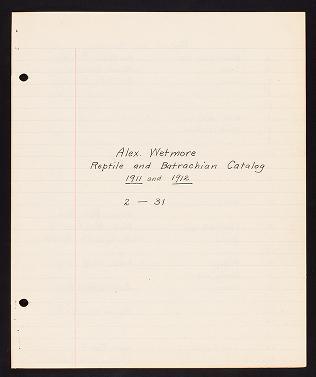 Alex. Wetmore
Reptile and Batrachian Catalog
1911 and 1912
2 — 31